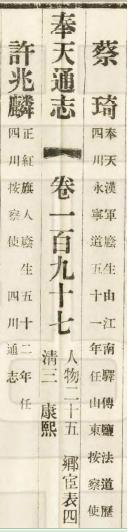 蔡琦
奉天漢軍廕生由江南驛傳鹽法道歷
四川永寧道五十一年任山東按察使
奉天通志 卷一百九十七
人物二十五 鄉宦表四
清三 康熙
許兆麟
正紅旗人廕生五十二年任
四川按察使 四川通志